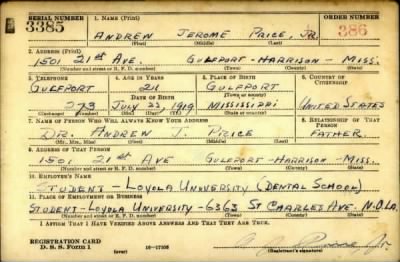 SERIAL NUMBER 1. NAME (Print) ORDER NUMBER
3385 ANDREW JEROME PRICE, JR. 386
(First) (Middle) (Last)
2. ADDRESS (Print)
1501 21st AVE. GULFPORT-HARRISON - MISS.
(Number and street or R. F. D. number) (Town) (County) (State)
3. TELEPHONE 4. AGE IN YEARS 5. PLACE OF BIRTH 6. COUNTRY OF CITIZENSHIP
GULFPORT 21 GULFPORT
DATE OF BIRTH (Town or county)
273 JULY 23, 1919 MISSISSIPPI UNITED STATES
(Exchange) (Number) (Mo.) (Day) (Yr.) (State or country)
7. NAME OF PERSON WHO WILL ALWAYS KNOW YOUR ADDRESS 8. RELATIONSHIP OF THAT PERSON
DR. ANDREW J. PRICE FATHER
(Mr., Mrs., Miss) (First) (Middle) (Last)
9. ADDRESS OF THAT PERSON
1501 21st AVE GULFPORT-HARRISON-MISS.
(Number and street or R. F. D. number) (Town) (County) (State)
10. EMPLOYER'S NAME
STUDENT - LOYOLA UNIVERSITY (DENTAL SCHOOL)
11. PLACE OF EMPLOYMENT OR BUSINESS
STUDENT-LOYOLA UNIVERSITY-6363 ST CHARLES AVE. N.O.LA.
(Number and street or R. F. D. number) (Town) (County) (State)
I AFFIRM THAT I HAVE VERIFIED ABOVE ANSWERS AND THAT THEY ARE TRUE.
REGISTRATION CARD
D. S. S. Form 1 (over) 16-17105
(Registrant's signature)